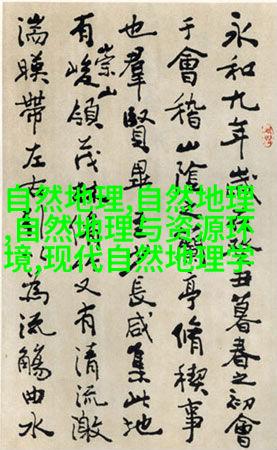 永和九年歲丑暮春之初會
于會稽山陰之亭脩稧事
也羣賢畢至長咸集此地
有崇山峻領茂林脩又有清流激
湍暎帶左右為流觴曲水
自然地理,自然地理
,自然地理与资源环
境,现代自然地理学